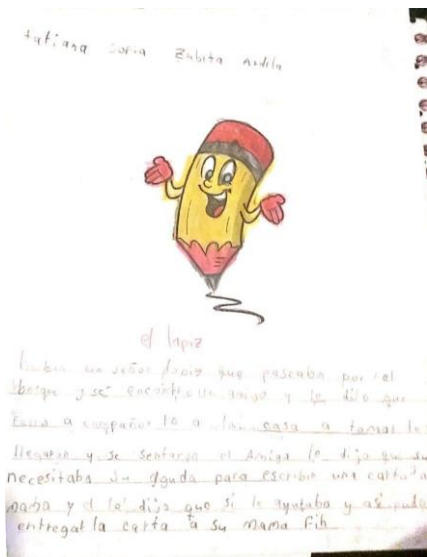 tatiana sofia Zubita Ardila
el lapiz
habia un señor lapiz que paseaba por el
bosque y se encontro un amigo y le dijo que
a compañar lo a la casa a tomar te
llegaron y se sentaron el Amigo le dijo que su
necesitaba su ayuda para escribir una carta a
mama y el le dijo que si le ayudaba y asi pudo
entregar la carta a su mama fih